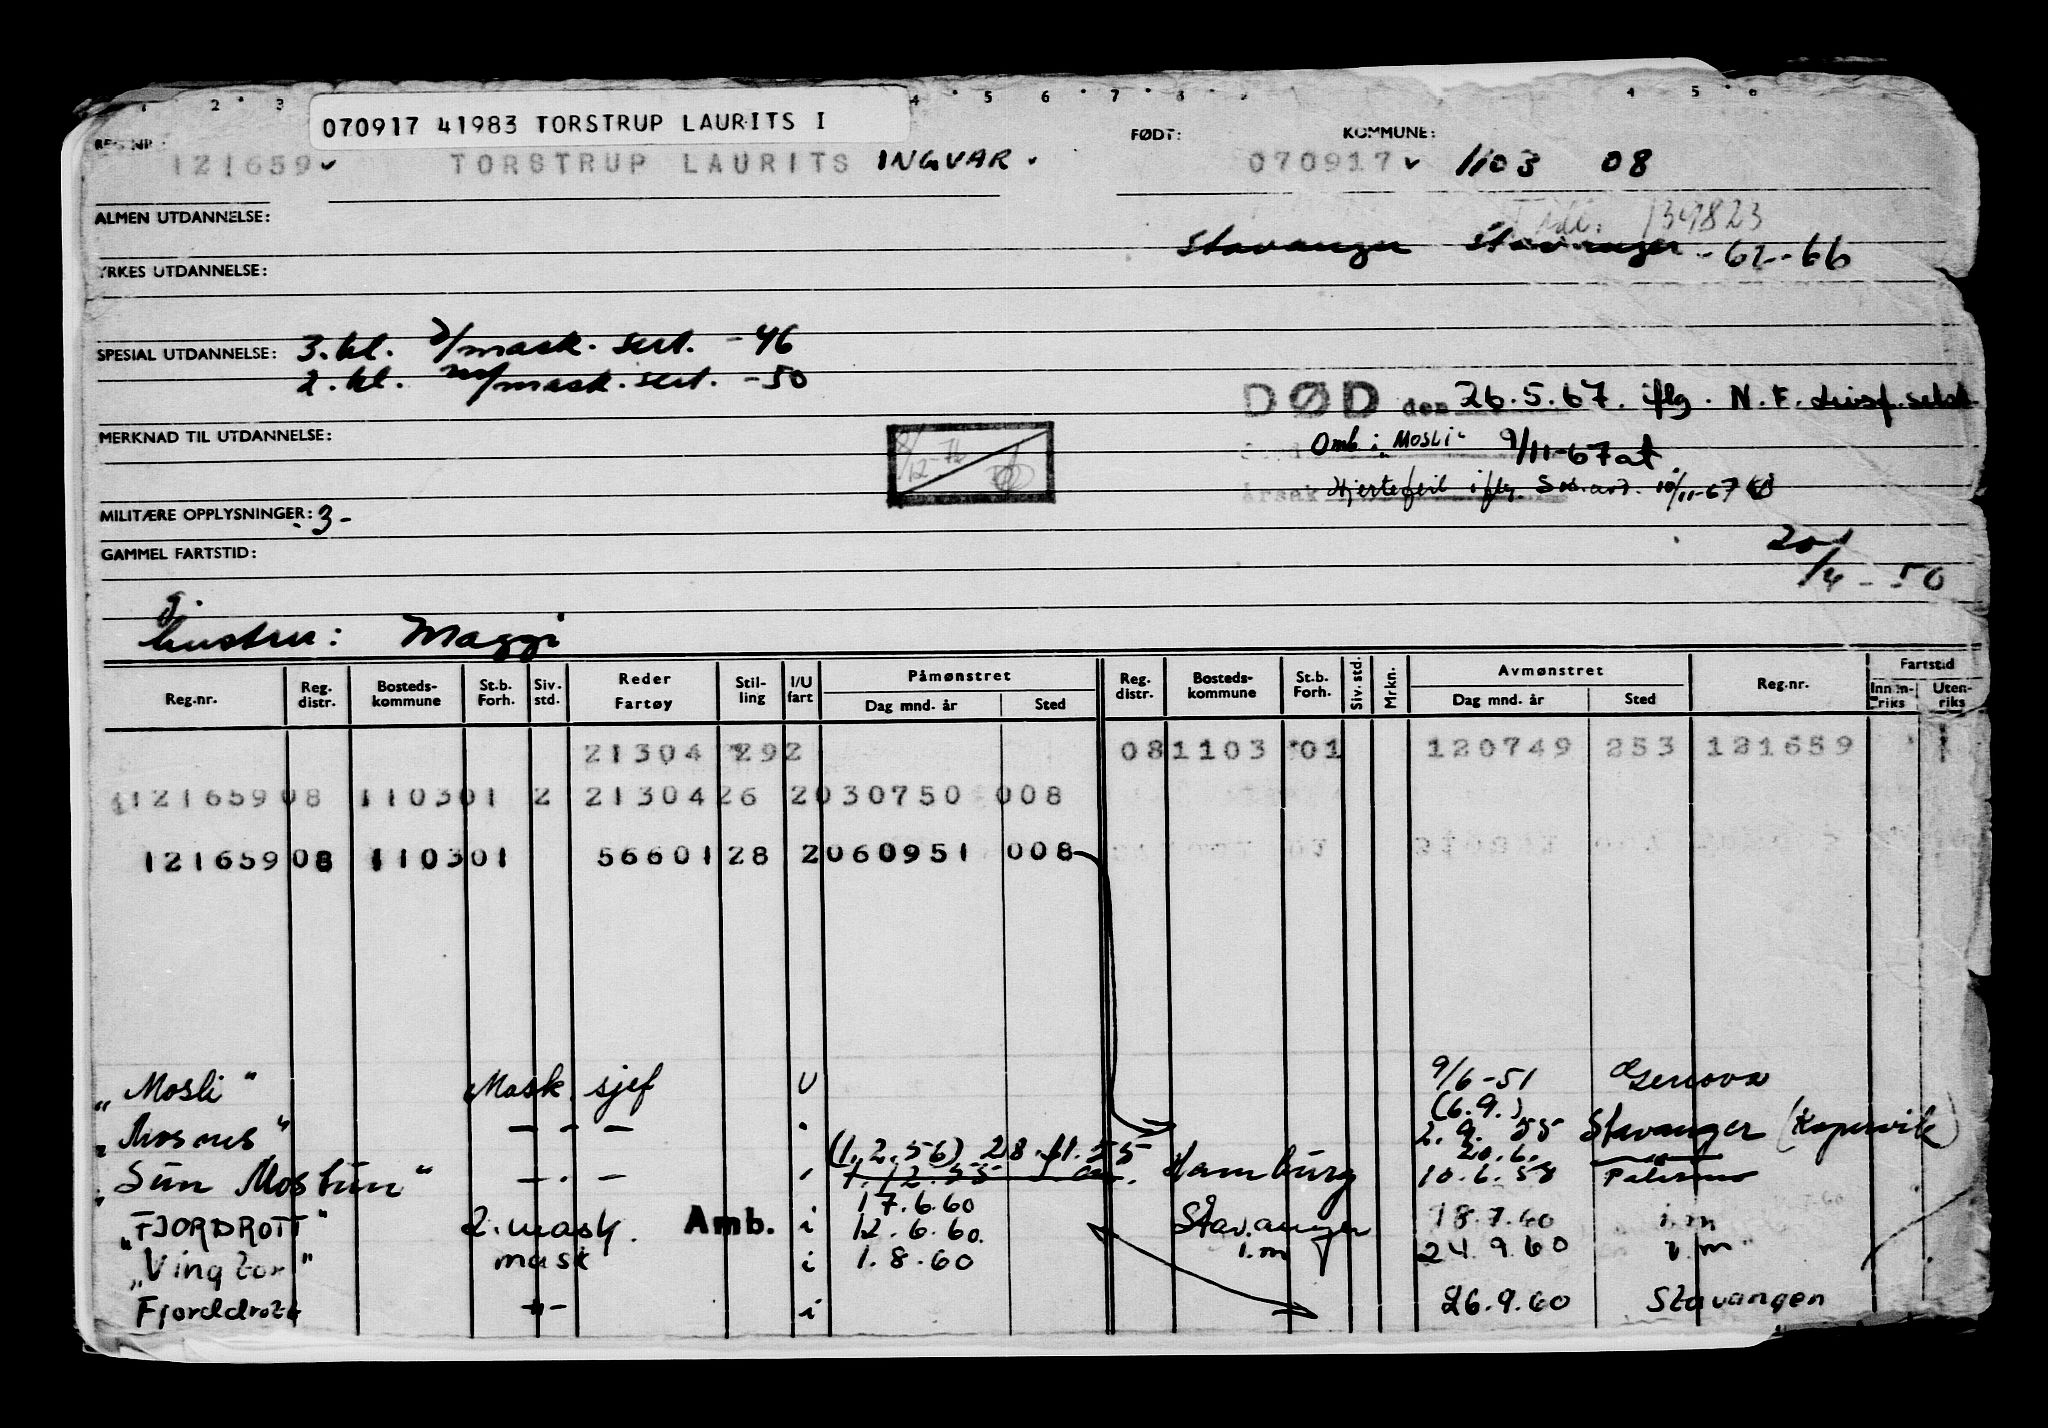 070917 41983 TORSTRUP LAURITS I
REG.NR.: FØDT: KOMMUNE:
121659 TORSTRUP LAURITS INGVAR. 070917 1103 08
ALMEN UTDANNELSE: 139823
Stavanger Stavanger -62-66
YRKES UTDANNELSE:
SPESIAL UTDANNELSE: 3. kl. /mask. sert. -46
2. kl. /mask. sert. -50
DØD den 26.5.67. iflg. N.F.
MERKNAD TIL UTDANNELSE:
Omb. i "Mosli" 9/11-67 at
Årsak Hjertefeil iflg. 10/11-67
MILITÆRE OPPLYSNINGER: 3-
GAMMEL FARTSTID:
20/4-50
hustru: Maggi
Reg.nr. Reg. distr. Bosteds- kommune St.b. Forh. Siv. std. Reder Fartøy Stil- ling I/U fart Påmønstret Dag mnd. år Sted Reg. distr. Bosteds- kommune St.b. Forh. Siv. std. Mrkn. Avmønstret Dag mnd. år Sted Reg.nr. Fartstid Innen- riks Uten- riks
21304 292 08 1103 01 120749 253 121659
121659 08 1103 01 2 21304 26 2 030750 008
121659 08 1103 01 56601 28 2 060951 008
"Mosli" Mask. sjef U 9/6-51 Genova
(6.9.)
"Mosnes" - - - 2.9.55 Stavanger (Kopervik)
(1.2.56) 28.11.55 20.6.
"Sun Mostun" - . - 1.12.55 Hamburg 10.6.58 Palermo
17.6.60
"FJORDROTT" 2. mask. Amb. i 12.6.60. Stavanger 18.7.60 i.m
"Vingtor" mask i 1.8.60 i.m 24.9.60 i.m
Fjorddrott -"- i 26.9.60 Stavanger